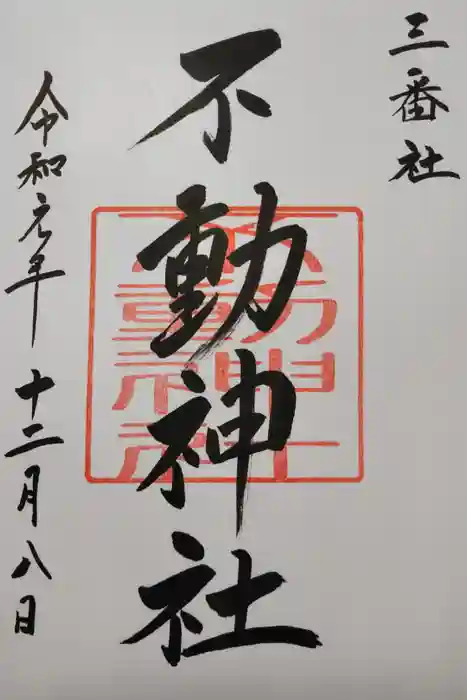 三番社
不動神社
令和元年 十二月八日